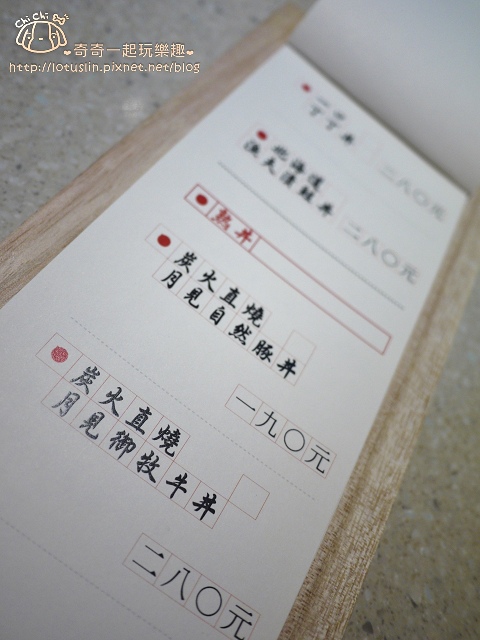 Chi Chi
奇奇一起玩樂趣
http://lotuslin.pixnet.net/blog
二八〇元
北海道
漁夫漬鮭丼
二八〇元
熟丼
炭火直燒
月見自然豚丼
一九〇元
炭火直燒
月見御牧牛丼
二八〇元